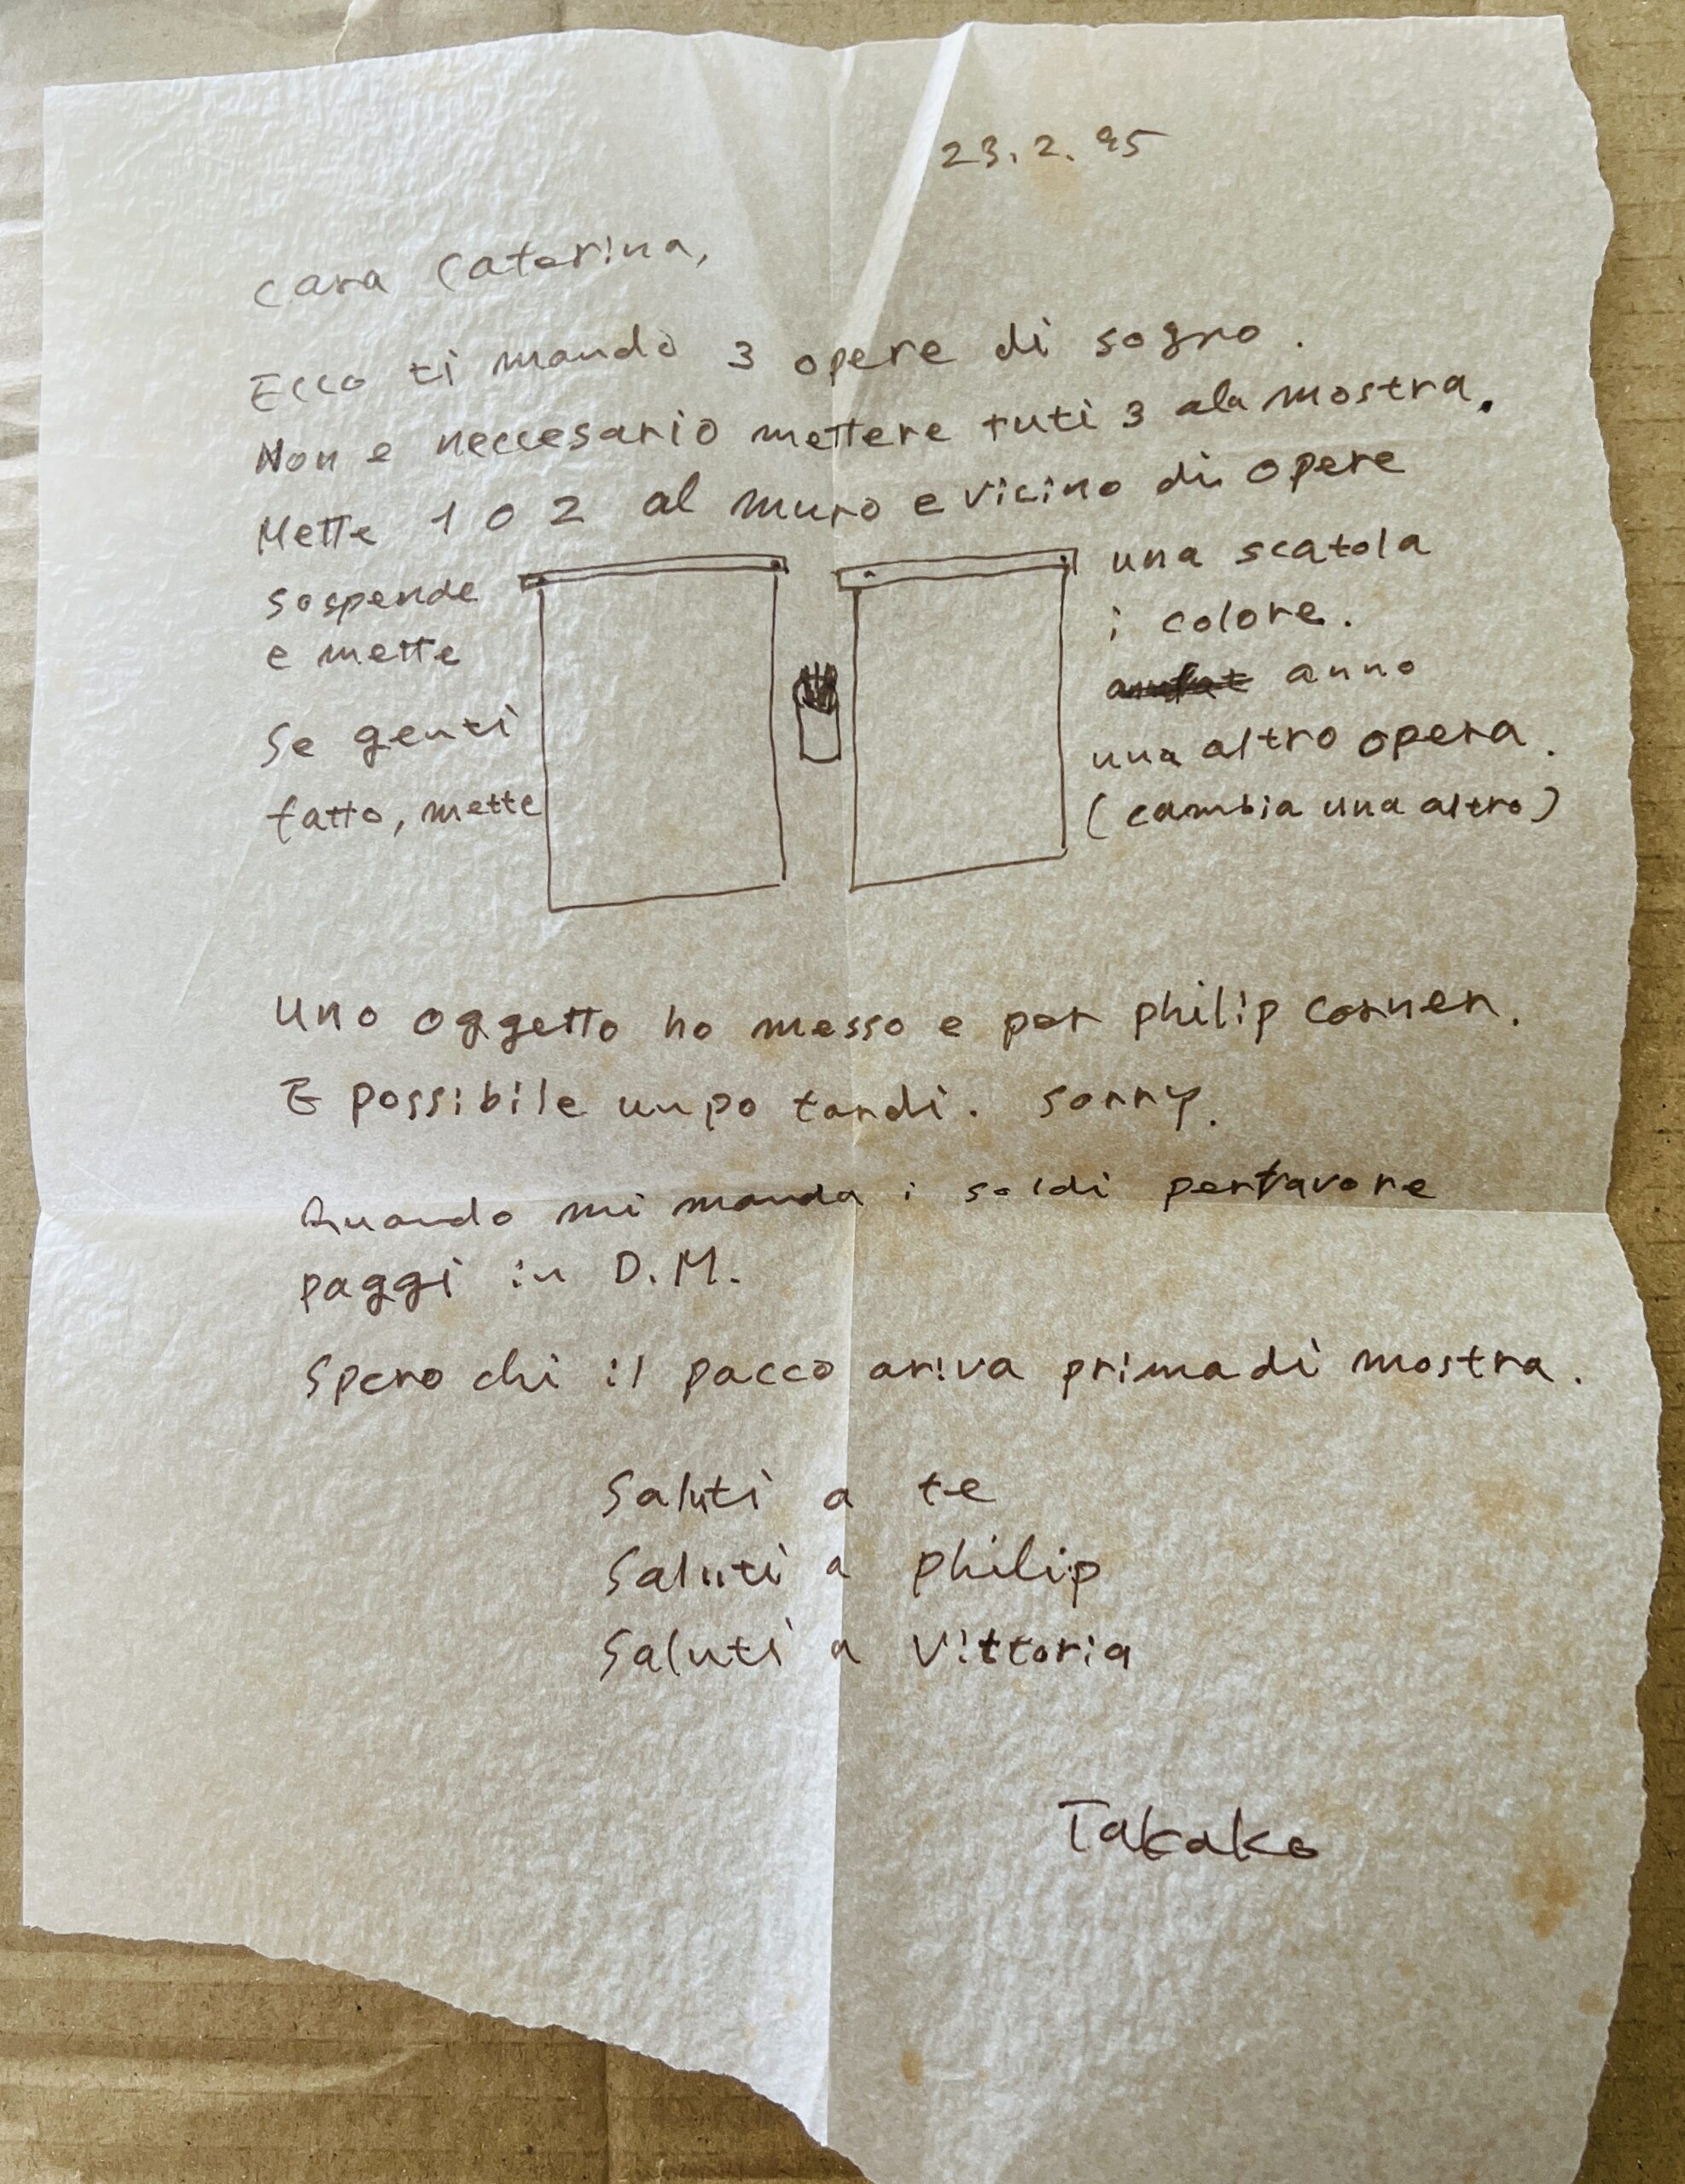 23.2.95
Cara Caterina,
Ecco ti mando 3 opere di sogno.
Non e neccesario mettere tuti 3 ala mostra.
Mette 1 o 2 al muro e vicino di opere
sospende una scatola
e mette i colore.
Se genti anno
fatto, mette una altro opera.
(cambia una altro)
Uno oggetto ho messo e per philip corner.
E possibile un po tardi. sorry.
Quando mi manda i soldi perfavore
paggi in D.M.
Spero chi il pacco ariva prima di mostra.
Saluti a te
Saluti a philip
Saluti a Vittoria
Takako